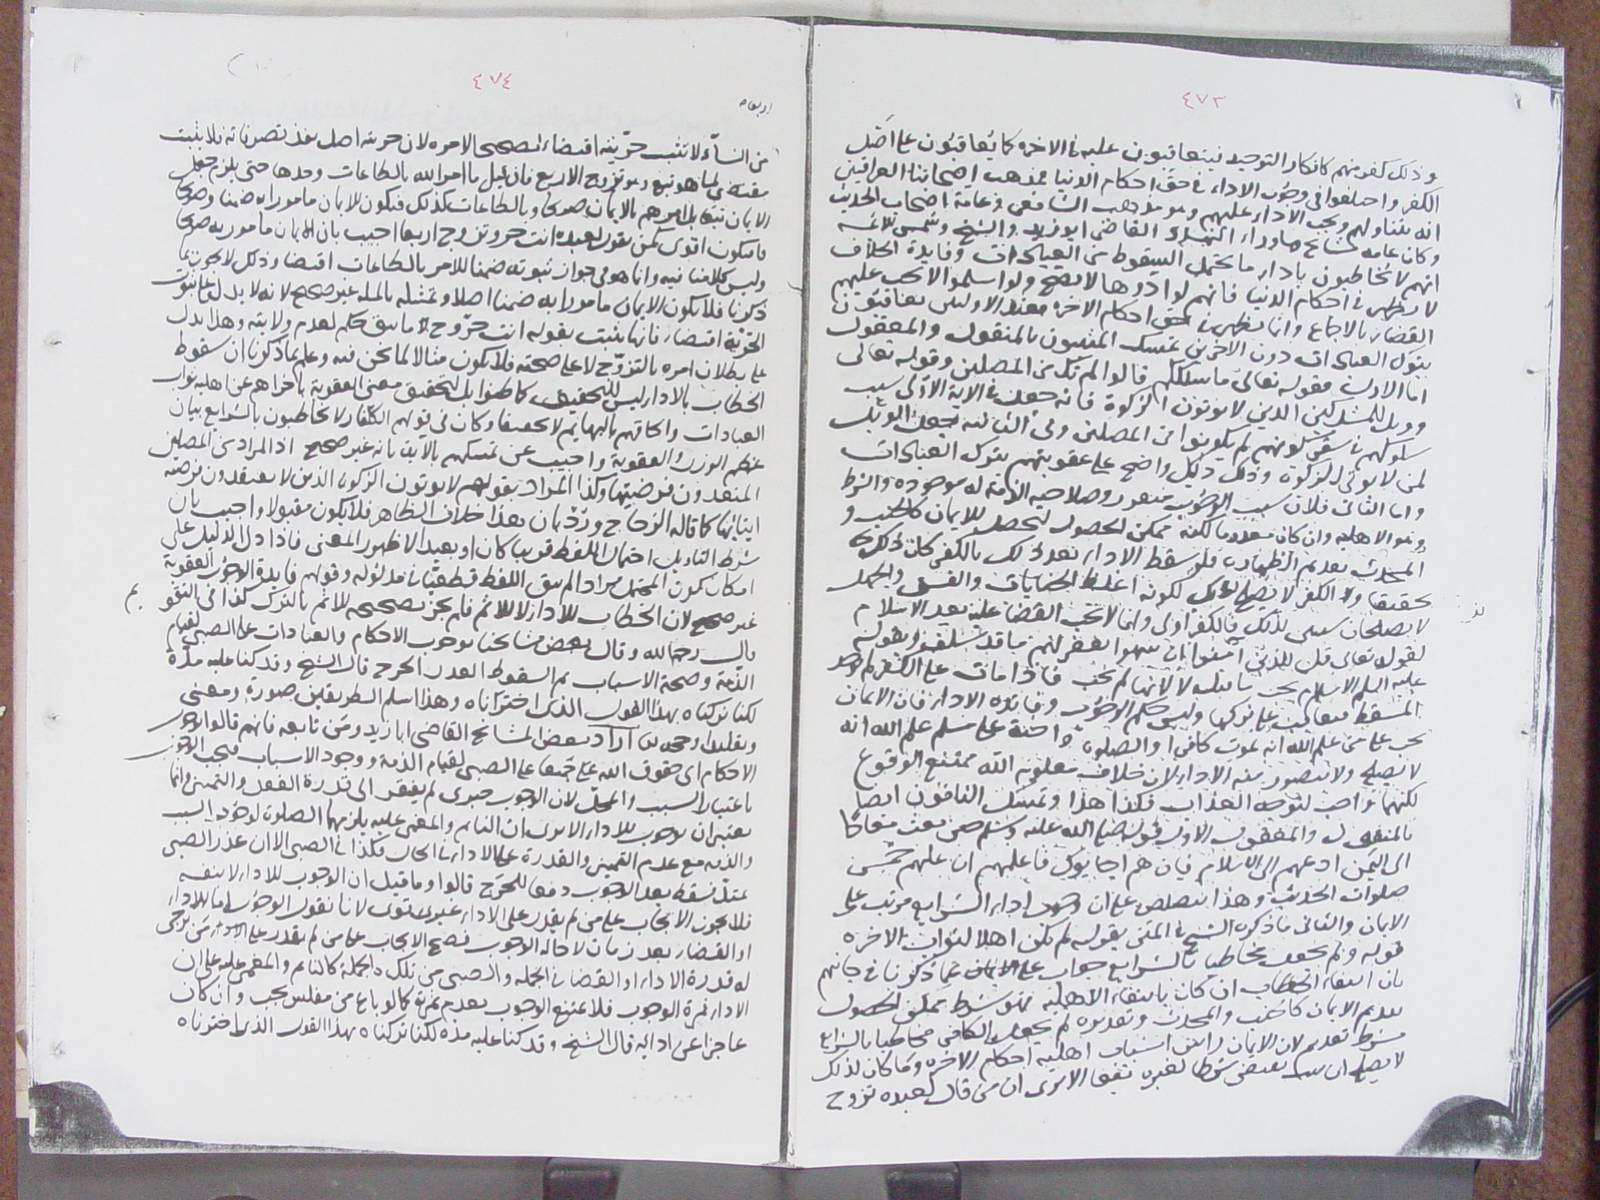 ٤٧٣
وذلك كفر منهم كانكار التوحيد فيعاقبون عليه فى الاخره كما يعاقبون على اصل
الكفر واختلفوا فى وجوب الاداء فى حق احكام الدنيا فمذهب اصحابنا العراقيين
انه يتناولهم ويجب الاداء عليهم وهو مذهب الشافعى وعامة اصحاب الحديث
وكان عامه مشايخ ماوراء النهر القاضى ابو زيد والشيخ وشمس الائمه
انهم لا يخاطبون باداء ما يحتمل السقوط من العبادات وفايدة الخلاف
لا تظهر فى احكام الدنيا فانهم لو ادوها لا تصح ولو اسلموا لا تجب عليهم
القضاء بالاجماع وانما تظهر فى حق احكام الاخره فعند الاولين يعاقبون
بترك العبادات دون الاخرين تمسك المثبتون بالمنقول والمعقول
اما الاول فقوله تعالى ما سلككم قالوا لم نك من المصلين وقوله تعالى
وويل للمشركين الذين لا يوتون الزكوة فانه جعل فى الاية الاولى سبب
سلوكهم فى سقر كونهم لم يكونوا من المصلين وفى الثانيه جعل الويل
لمن لا يوتى الزكوة وذلك دليل واضح على عقوبتهم بترك العبادات
واما الثانى فلان سبب الوجوب متقرر وصلاحيه الذمة له موجوده والشرط
وهو الاهليه وان كان معدوما لكنه ممكن الحصول لتحصيل الايمان كالجنب و
المحدث بعدم الطهاره فلو سقط الاداء بعد ذلك بالكفر كان ذلك
تحقيقا ولان الكفر لا يصلح لذلك لكونه اغلظ الجنايات والفسق والجهل
لا يصلحان سببى لذلك فالكفر اولى وانما لا تجب القضا عليه بعد الاسلام
لقوله تعالى قل للذين كفروا ان ينتهوا يغفر لهم ما قد سلف وبقوله
عليه السلم الاسلام يجب ما قبله لا لانها لم تجب فاذا مات على الكفر لم يوجد
المسقط فيعاقب على تركها وليس حكم الوجوب وفايدة الاداء فان الايمان
يجب على من علم الله انه يموت كافرا والصلوة واجبة على مسلم علم الله انه
لا يصلى ولا يتصور منه الاداء لان خلاف معلوم الله ممتنع الوقوع
لكنهما واجب لتوجه العذاب فكذا هذا وتمسك النافون ايضا
بالمنقول والمعقول الاول قوله صلى الله عليه وسلم حين بعث معاذا
الى اليمن ادعهم الى الاسلام فان هم اجابوك فاعلمهم ان عليهم خمس
صلوات الحديث وهذا تنصيص على ان وجوب اداء الشرايع مرتب على
الايمان والثانى ما ذكره الشيخ فى المتن بقوله لم يكن اهلا لثواب الاخره
قوله ولم يجعل مخاطبا بالشرايع جواب عما ذكرنا فى جانبهم
بان انتفاء الخطاب ان كان بانتفاء الاهليه فهو شرط ممكن الحصول
بتقديم الايمان كالجنب والمحدث وتقديره لم يجعل الكافر مخاطبا بالشرايع
بشرط تقديم الايمان لان الايمان راس اسباب اهليه احكام الاخره وما كان لذلك
لا يصلح ان يثبت بمقتضى شرطا لغيره تبعا الا ترى ان من قال لعبده تزوج
٤٧٤
اربعا
من النساء لا تثبت حريته اقتضاء لتصحيح الامر لان حريته اصل نفذ تصرفاته فلا يثبت
مقتضى لما هو تبع وهو تزوج الاربع فان قيل ما امر الله بالطاعات وحدها حتى يلزم جعل
الايمان تبعا بل امرهم بالايمان صريحا وبالطاعات كذلك فيكون الايمان مامورا به ضمنا وصريحا
فيكون اقوى كمن يقول لعبده انت حر وتزوج اربعا اجيب بان الايمان مامور به صريحا
وليس كلامنا فيه وانما هو فى جواز ثبوته ضمنا للامر بالطاعات اقتضاء وذلك لا يجوز لما
ذكرنا فلا يكون الايمان مامورا به ضمنا اصلا وتمثله بالمثله غير صحيح لانه لا يدل على ثبوت
الحرية اقتضاء فانها يثبت بقوله انت حر وتزوج ما يبق حكم لعدم ولايته وهذا يدل
على بطلان امره بالتزوج لا على صحته فلا يكون مثالا لما نحن فيه وعلم بما ذكرنا ان سقوط
الخطاب بالاداء ليس للتخفيف كما ظنوا بل لتحقيق معنى العقوبة باخراجهم عن اهليه ثواب
العبادات والحاقهم بالبهايم لا تخفيفا وكان فى قولهم الكفار لا يخاطبون بالشرايع بيان
عظم الوزر والعقوبة واجيب عن تمسكهم بالاية بانه غير صحيح اذ المراد من المصلين
المعتقدون فرضيتها وكذا المراد بقوله لا يوتون الزكوة الذين لا يعتقدون فرضية
ايتائها كما قاله الزجاج ورد بان هذا خلاف الظاهر فلا يكون مقبولا واجيب بان
شرط التاويل احتمال اللفظ قريبا كان او بعيدا لا ظهور المعنى فاذا دل الدليل على
امكان كون المحتمل مرادا لم يبق اللفظ قطعيا فى مدلوله وقولهم فايدة الوجوب العقوبة
غير صحيح لان الخطاب للاداء لا للاثم فلم يجز تصحيحه للاثم بالترك كذا فى التقويم
قال رحمه الله وقال بعض مشايخنا بوجوب الاحكام والعبادات على الصبى لقيام
الذمة وصحة الاسباب ثم السقوط لعذر الحرج قال الشيخ وقد كنا عليه مدة
لكنا تركناه بهذا القول الذى اخترناه وهذا اسلم الطريقين صورة ومعنى
وتقليدا وحجه اراد ببعض المشايخ القاضى ابا زيد ومن تابعه فانهم قالوا بوجوب
الاحكام اى حقوق الله تعالى جميعا على الصبى لقيام الذمة ووجود الاسباب فيجب الوجوب
باعتبار السبب والمحل لان الوجوب جبرى لم يفتقر الى قدرة الفعل والتمييز وانما
يعتبران لوجوب الاداء الا يرى ان النائم والمغمى عليه يلزمهما الصلوة لوجود السبب
والذمه مع عدم التمييز والقدرة على الاداء فى الحال فكذا فى الصبى الا ان عذر الصبى
يمتد فسقط بعد الوجوب دفعا للحرج قالوا وما قيل ان الوجوب للاداء لا لنفسه
فلا يجوز الايجاب على من لم يقدر على الاداء غير قوى لانا نقول الوجوب اما للاداء
او القضاء بعد زمان لا حاله الوجوب فصح الايجاب على من لم يقدر على الاداء ممن يرجى
له قدرة الاداء او القضاء فى الجمله والصبى من تلك الجملة كالنائم والمغمى عليه على ان
الاداء ثمرة الوجوب فلا يمتنع الوجوب بعدم ثمرته كما لو باع من مفلس يجب وان كان
عاجزا عن ادائه قال الشيخ وقد كنا عليه مدة لكنا تركناه بهذا القول الذى اخترناه